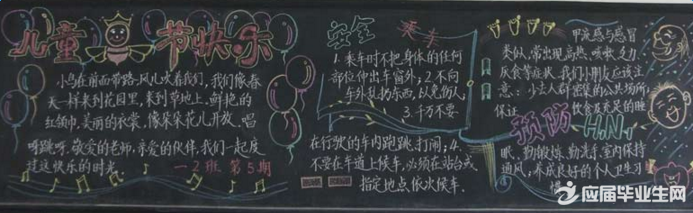 儿童节快乐
小鸟在前面带路,风儿吹着我们,我们像春
天一样来到花园里,来到草地上。鲜艳的
红领巾,美丽的衣裳,像朵朵花儿开放。唱
呀跳呀,敬爱的老师,亲爱的伙伴,我们一起度
过这快乐的时光。
一2班 第5期
安全乘车
1.乘车时不把身体的任何
部位伸出车窗外;2.不向
车外乱扔东西,以免伤人;
3.千万不要
在行驶的车内跑跳、打闹;4.
不要在车道上候车,必须在站台或
指定地点依次候车.
甲流感与感冒
类似,常出现高热、咳嗽、乏力、
厌食等症状.我们小朋友应该注
意:少去人群密集的公共场所;
保证
饮食及充足的睡
预防H1N1
眠、勤锻炼、勤洗手;室内保持
通风,养成良好的个人卫生习
惯.
应届毕业生网